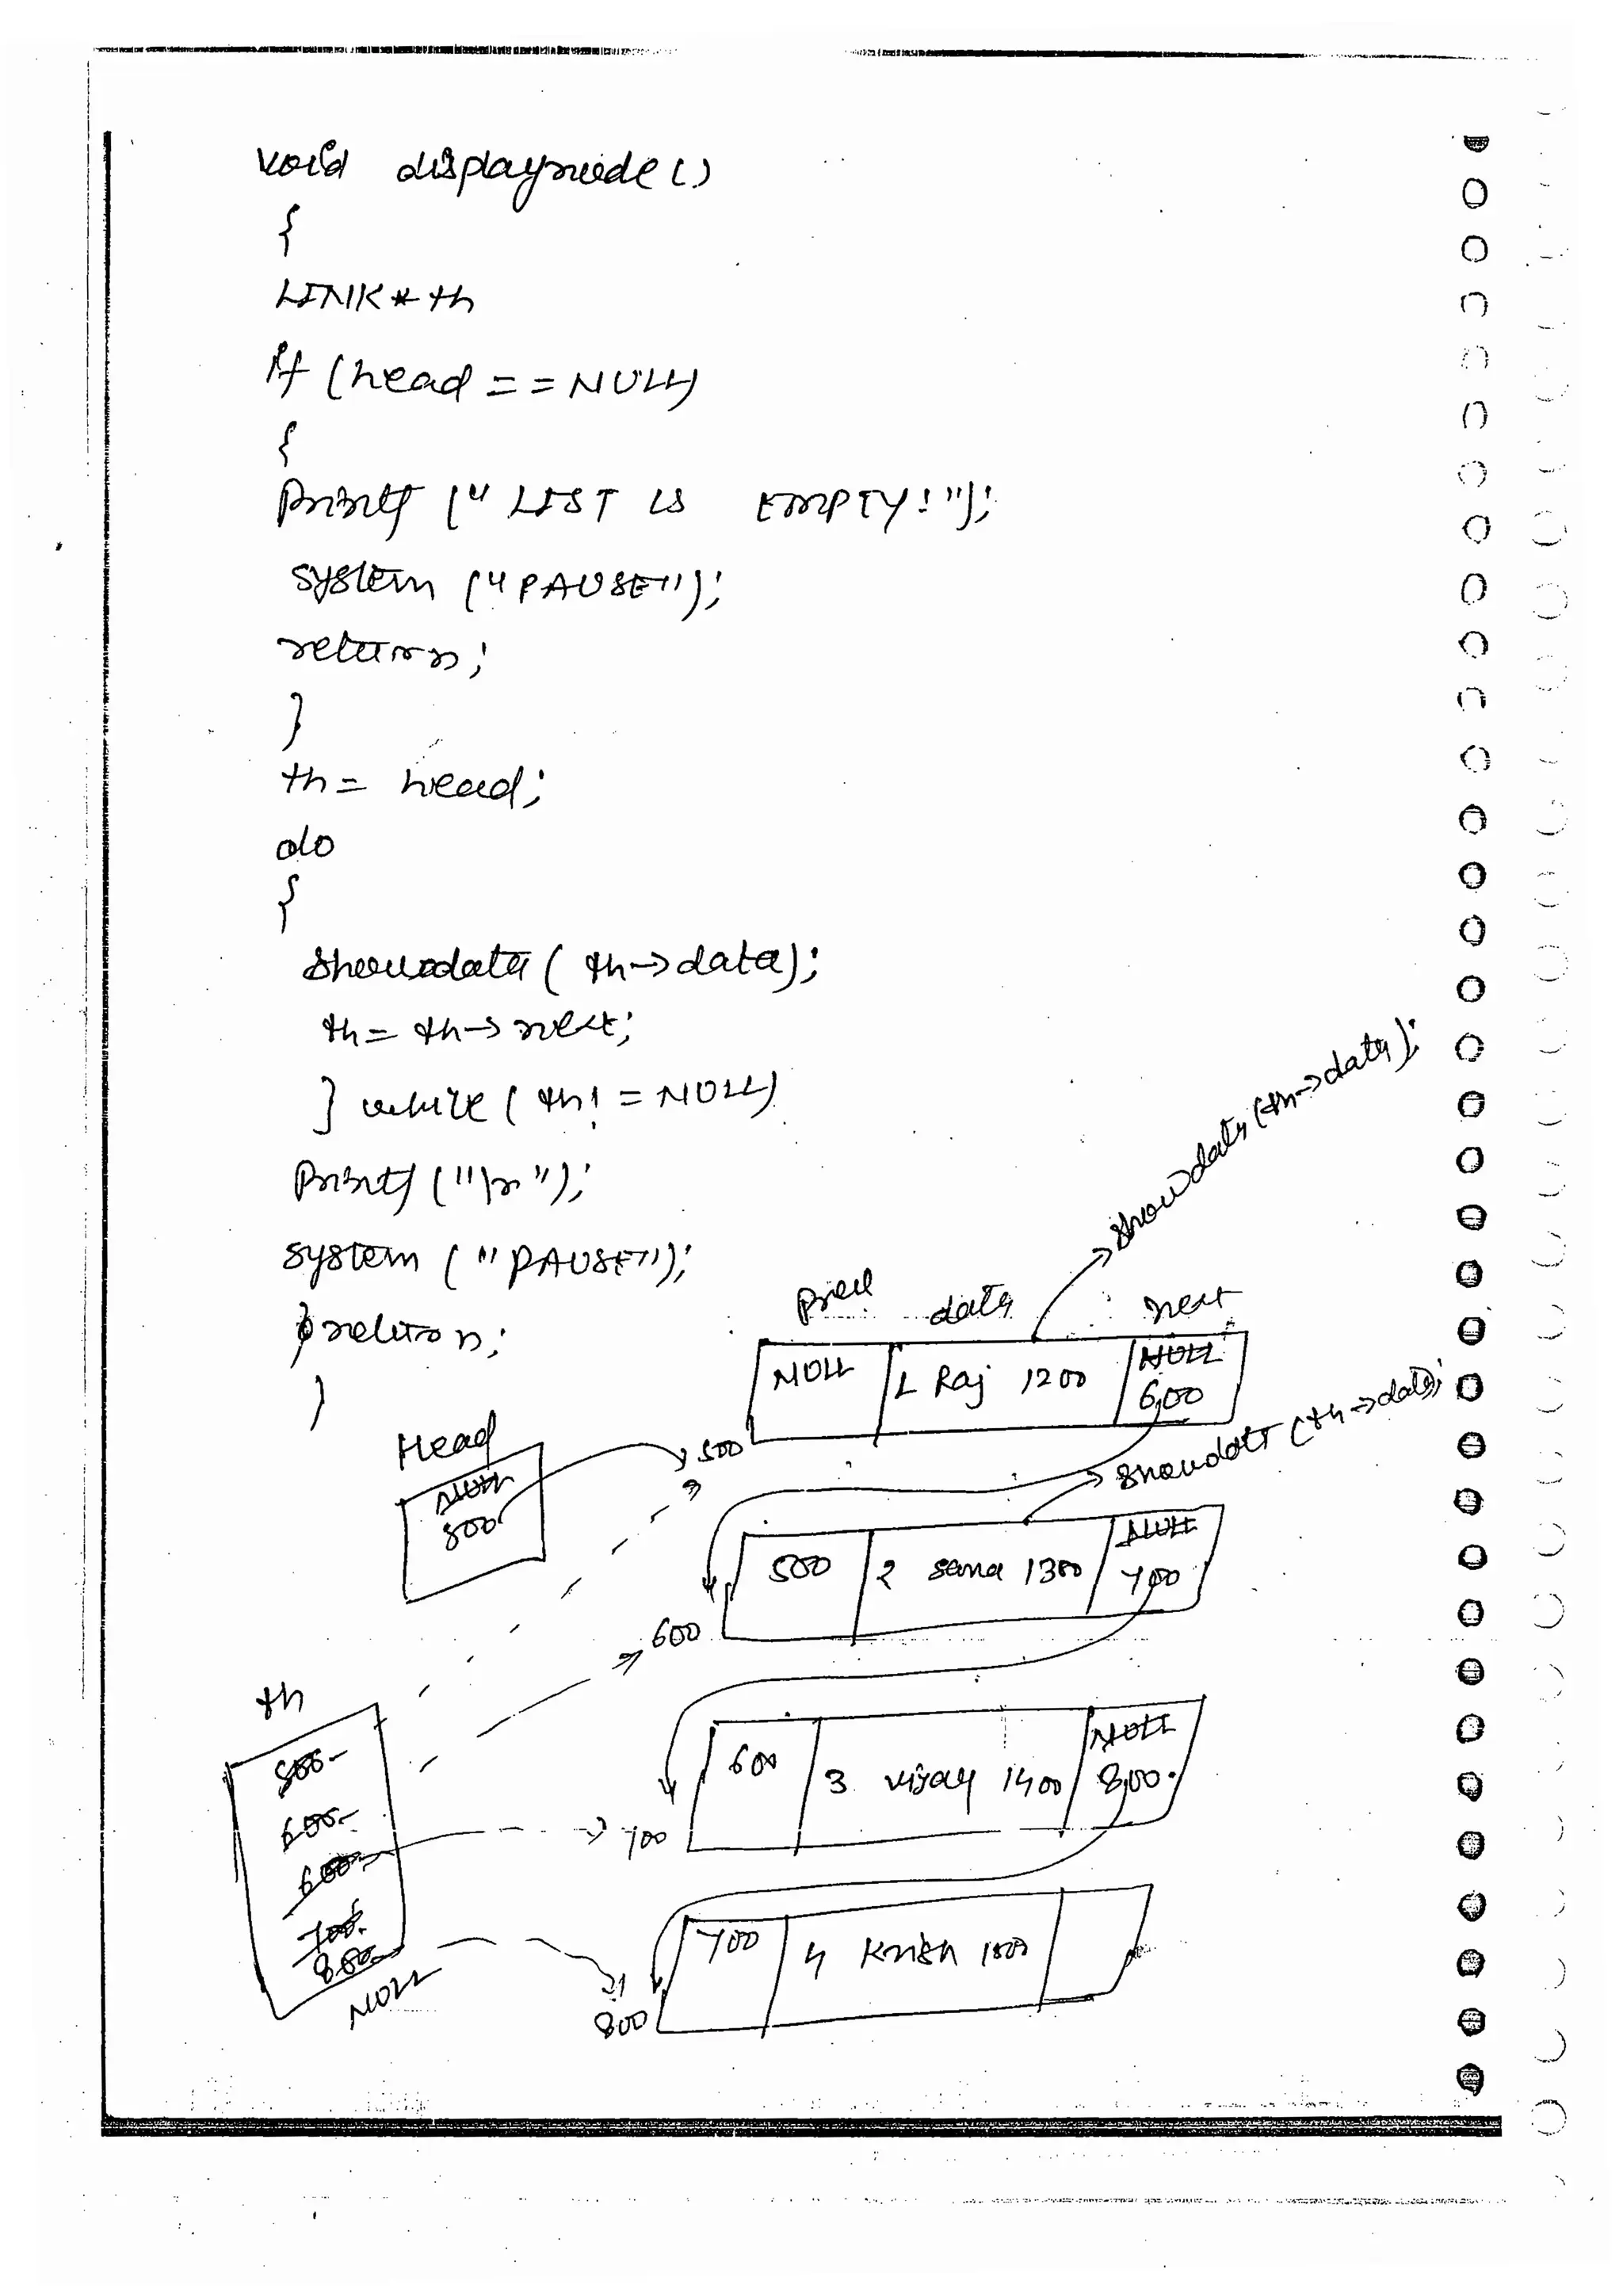 void displaynode()
{
LINK * th
if (head == NULL)
{
printf ("LIST IS EMPTY!");
system ("PAUSE");
return;
}
th = head;
do
{
showdata ( th->data);
th = th->next;
} while ( th! = NULL)
printf ("\n");
system ("PAUSE");
return;
}
showdata (th->data);
prev data next
NULL 1 Raj 1200 NULL
600
500
Head
NULL
500
showdata (th->data);
500 2 sana 1300 NULL
700
600
th
500
600
600
700
800
NULL
600 3 vijay 1400 NULL
800
700
700 4 Krish 1500
800